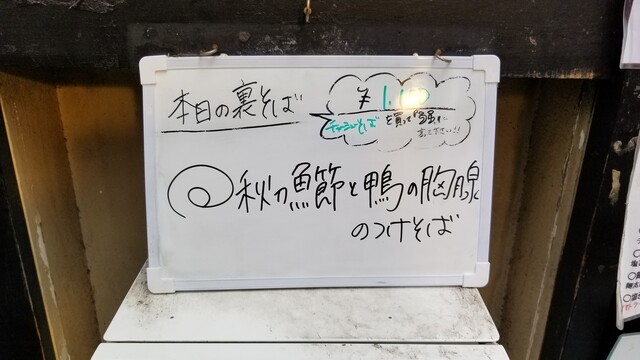 本日の裏そば
チャーシューそば
を買って
言って下さい!!
秋刀魚節と鴨の胸腺
のつけそば